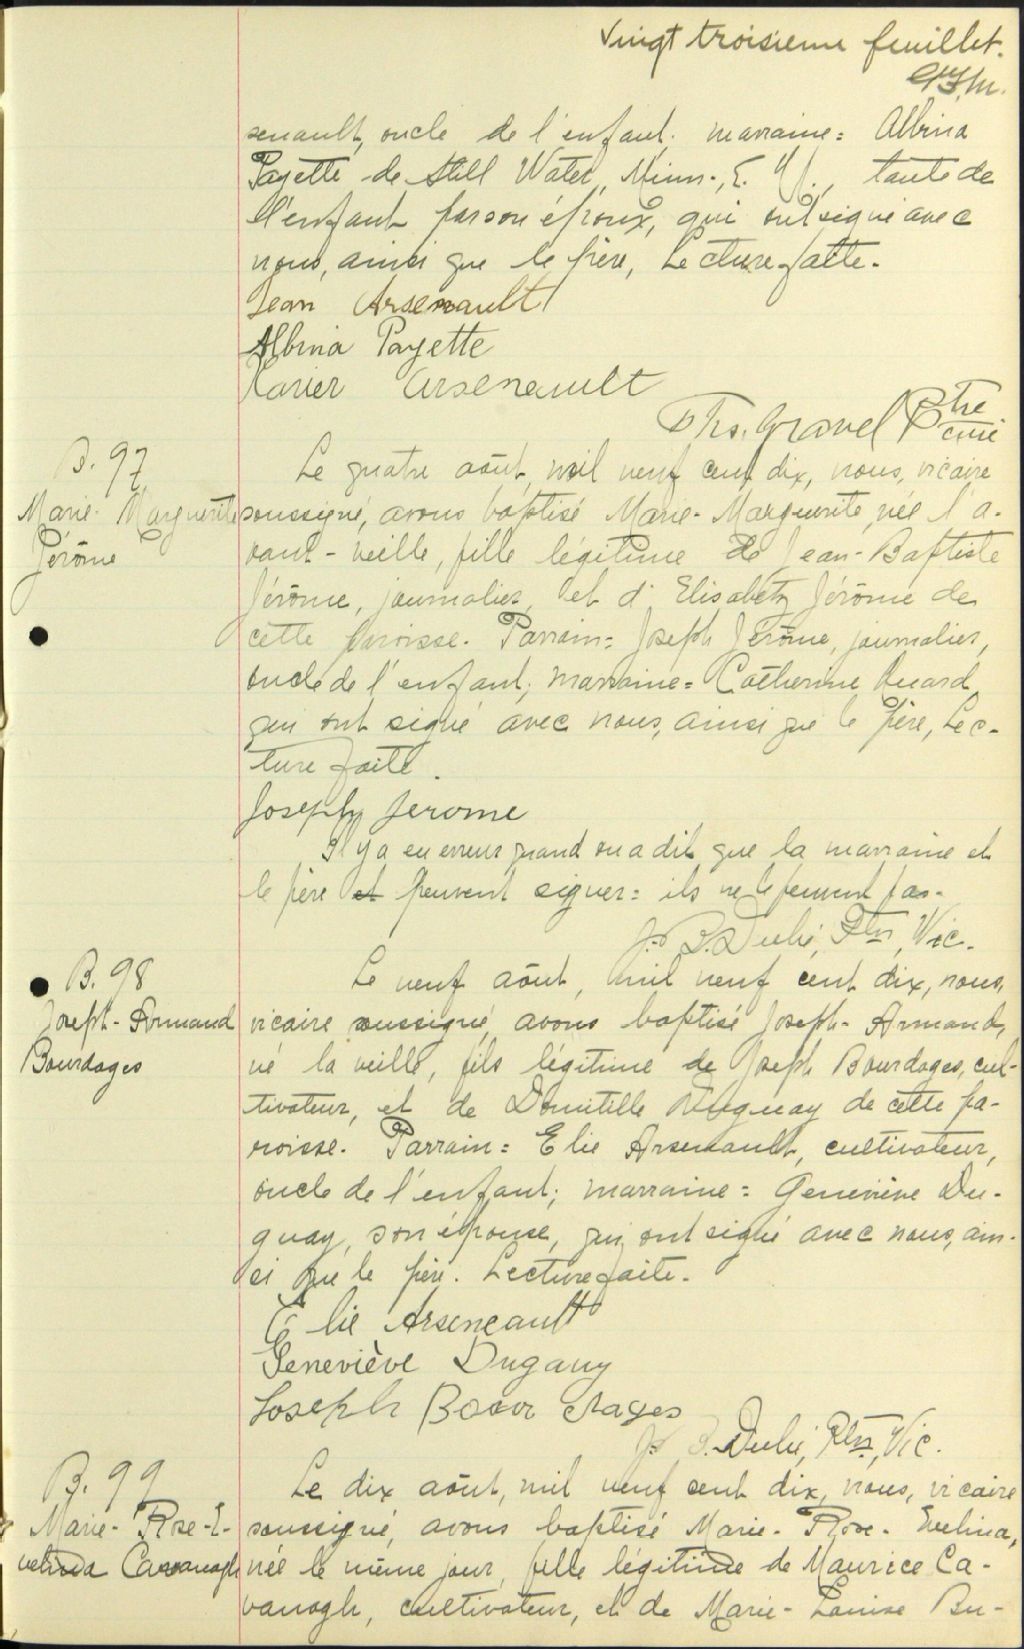 Vingt troisième feuillet.
senault, oncle de l'enfant. marraine = Albina
Payette de Still Water, Minn., E. U., tante de
l'enfant par son époux, qui ont signé avec
nous, ainsi que le père, Lecture faite.
Jean Arsenault
Albina Payette
Xavier Arseneault
Ths. Gravel Ptre
curé
B. 97
Marie-Marguerite
Jérôme
Le quatre août, mil neuf cent dix, nous, vicaire
soussigné, avons baptisé Marie-Marguerite née l'a-
vant-veille, fille légitime de Jean-Baptiste
Jérôme, journalier, et d'Elisabeth Jérôme de
cette paroisse. Parrain = Joseph Jérôme, journalier,
oncle de l'enfant; marraine = Catherine
qui ont signé avec nous, ainsi que le père, Lec-
ture faite.
Joseph Jerome
Il y a eu erreur quand on a dit que la marraine et
le père et peuvent signer = ils ne le peuvent pas.
J. B. Dubé, Ptre, Vic.
B. 98
Joseph-Armand
Bourdages
Le neuf août, mil neuf cent dix, nous,
vicaire soussigné, avons baptisé Joseph-Armand,
né la veille, fils légitime de Joseph Bourdages, cul-
tivateur, et de Domitille Duguay de cette pa-
roisse. Parrain = Elie Arsenault, cultivateur,
oncle de l'enfant; marraine = Geneviève Du-
guay, son épouse, qui ont signé avec nous, ain-
si que le père. Lecture faite.
Élie Arseneault
Geneviève Dugauy
Joseph Bourdages
J. B. Dubé, Ptre, Vic.
B. 99
Marie-Rose-E-
velina Cavanagh
Le dix août, mil neuf cent dix, nous, vicaire
soussigné, avons baptisé Marie-Rose-Evelina,
née le même jour, fille légitime de Maurice Ca-
vanagh, cultivateur, et de Marie-Louise Bu-